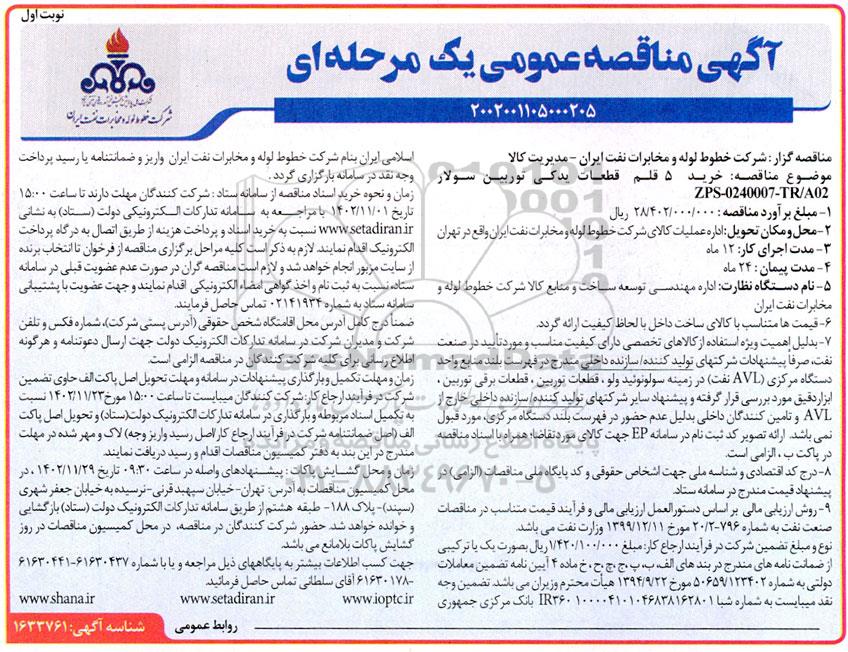 نوبت اول
آگهی مناقصه عمومی یک مرحله ای
۲۰۰۲۰۰۱۱۰۵۰۰۰۲۰۵
شرکت خطوط لوله و مخابرات نفت ایران
مناقصه گزار : شرکت خطوط لوله و مخابرات نفت ایران - مدیریت کالا
موضوع مناقصه: خرید ۵ قلم قطعات یدکی توربین سولار
ZPS-0240007-TR/A02
۱- مبلغ برآورد مناقصه : ۲۸/۴۰۲/۰۰۰/۰۰۰ ریال
۲- محل و مکان تحویل: اداره عملیات کالای شرکت خطوط لوله و مخابرات نفت ایران واقع در تهران
۳- مدت اجرای کار: ۱۲ ماه
۴- مدت پیمان : ۲۴ ماه
۵- نام دستگاه نظارت: اداره مهندسی توسعه ساخت و منابع کالا شرکت خطوط لوله و
مخابرات نفت ایران
۶- قیمت ها متناسب با کالای ساخت داخل با لحاظ کیفیت ارائه گردد.
۷- بدلیل اهمیت ویژه استفاده از کالاهای تخصصی دارای کیفیت مناسب و مورد تأیید در صنعت
نفت، صرفاً پیشنهادات شرکتهای تولید کننده/سازنده داخلی مندرج در فهرست بلند منابع واحد
دستگاه مرکزی (AVL نفت) در زمینه سولونوئید ولو ، قطعات توربین ، قطعات برقی توربین ،
ابزاردقیق مورد بررسی قرار گرفته و پیشنهاد سایر شرکتهای تولید کننده/سازنده داخلی خارج از
AVL و تامین کنندگان داخلی بدلیل عدم حضور در فهرست بلند دستگاه مرکزی، مورد قبول
نمی باشد. ارائه تصویر کد ثبت نام در سامانه EP جهت کالای مورد تقاضا؛ همراه با اسناد مناقصه
در پاکت ب ، الزامی است.
۸- درج کد اقتصادی و شناسه ملی جهت اشخاص حقوقی و کد پایگاه ملی مناقصات (الزامی) در
پیشنهاد قیمت مندرج در سامانه ستاد.
۹- روش ارزیابی مالی بر اساس دستورالعمل ارزیابی مالی و فرآیند قیمت متناسب در مناقصات
صنعت نفت به شماره ۷۹۶-۲۰/۲ مورخ ۱۳۹۹/۱۲/۱۱ وزارت نفت می باشد.
نوع و مبلغ تضمین شرکت در فرآیند ارجاع کار: مبلغ ۱/۴۲۰/۱۰۰/۰۰۰ ریال بصورت یک یا ترکیبی
از ضمانت نامه های مندرج در بند های الف، ب، پ، ج، چ، ح، خ ماده ۴ آیین نامه تضمین معاملات
دولتی به شماره ۵۰۶۵۹/۱۲۳۴۰۲ مورخ ۱۳۹۴/۹/۲۲ هیأت محترم وزیران می باشد. تضمین وجه
نقد میبایست به شماره شبا IR۳۶۰ ۱۰۰۰۰۴۱۰۱۰۴۶۸۳۸۱۶۲۸۰۱ بانک مرکزی جمهوری
اسلامی ایران بنام شرکت خطوط لوله و مخابرات نفت ایران واریز و ضمانتنامه یا رسید پرداخت
وجه نقد در سامانه بارگزاری گردد .
زمان و نحوه خرید اسناد مناقصه از سامانه ستاد : شرکت کنندگان مهلت دارند تا ساعت ۱۵:۰۰
تاریخ ۱۴۰۲/۱۱/۰۱ با مراجعه به سامانه تدارکات الکترونیکی دولت (ستاد) به نشانی
www.setadiran.ir نسبت به خرید اسناد و پرداخت هزینه از طریق اتصال به درگاه پرداخت
الکترونیک اقدام نمایند. لازم به ذکر است کلیه مراحل برگزاری مناقصه از فرخوان تا انتخاب برنده
از سایت مزبور انجام خواهد شد و لازم است مناقصه گران در صورت عدم عضویت قبلی در سامانه
ستاد، نسبت به ثبت نام و اخذ گواهی امضاء الکترونیکی اقدام نمایند و جهت عضویت با پشتیبانی
سامانه ستاد به شماره ۰۲۱۴۱۹۳۴ تماس حاصل فرمایند.
ضمناً درج کامل آدرس محل اقامتگاه شخص حقوقی (آدرس پستی شرکت)، شماره فکس و تلفن
شرکت و مدیران شرکت در سامانه تدارکات الکترونیک دولت جهت ارسال دعوتنامه و هرگونه
اطلاع رسانی برای کلیه شرکت کنندگان در مناقصه الزامی است.
زمان و مهلت تکمیل و بارگذاری پیشنهادات در سامانه و مهلت تحویل اصل پاکت الف حاوی تضمین
شرکت در فرآیند ارجاع کار: شرکت کنندگان میبایست تا ساعت ۱۵:۰۰ مورخ ۱۴۰۲/۱۱/۲۳ نسبت
به تکمیل اسناد مربوطه و بارگذاری در سامانه تدارکات الکترونیک دولت(ستاد) و تحویل اصل پاکت
الف (اصل ضمانتنامه شرکت در فرآیند ارجاع کار/اصل رسید واریز وجه) لاک و مهر شده در مهلت
مندرج در این بند به دفتر کمیسیون مناقصات اقدام و رسید دریافت نمایند.
زمان و محل گشایش پاکات : پیشنهادهای واصله در ساعت ۰۹:۳۰ تاریخ ۱۴۰۲/۱۱/۲۹ ، در
محل کمیسیون مناقصات به آدرس: تهران- خیابان سپهبد قرنی- نرسیده به خیابان جعفر شهری
(سپند)- پلاک ۱۸۸- طبقه هشتم از طریق سامانه تدارکات الکترونیک دولت (ستاد) بازگشایی
و خوانده خواهد شد. حضور شرکت کنندگان در مناقصه، در محل کمیسیون مناقصات در روز
گشایش پاکات بلامانع می باشد.
جهت کسب اطلاعات بیشتر به پایگاههای ذیل مراجعه و یا با شماره ۶۱۶۳۰۴۳۷-۶۱۶۳۰۴۴۱
-۶۱۶۳۰۱۷۸ آقای سلطانی تماس حاصل فرمائید.
www.shana.ir www.setadiran.ir www.ioptc.ir
روابط عمومی
شناسه آگهی: ۱۶۳۳۷۶۱
ParsNamadData
۰۲۱-۸۸۳۴۹۶۷۰-۵